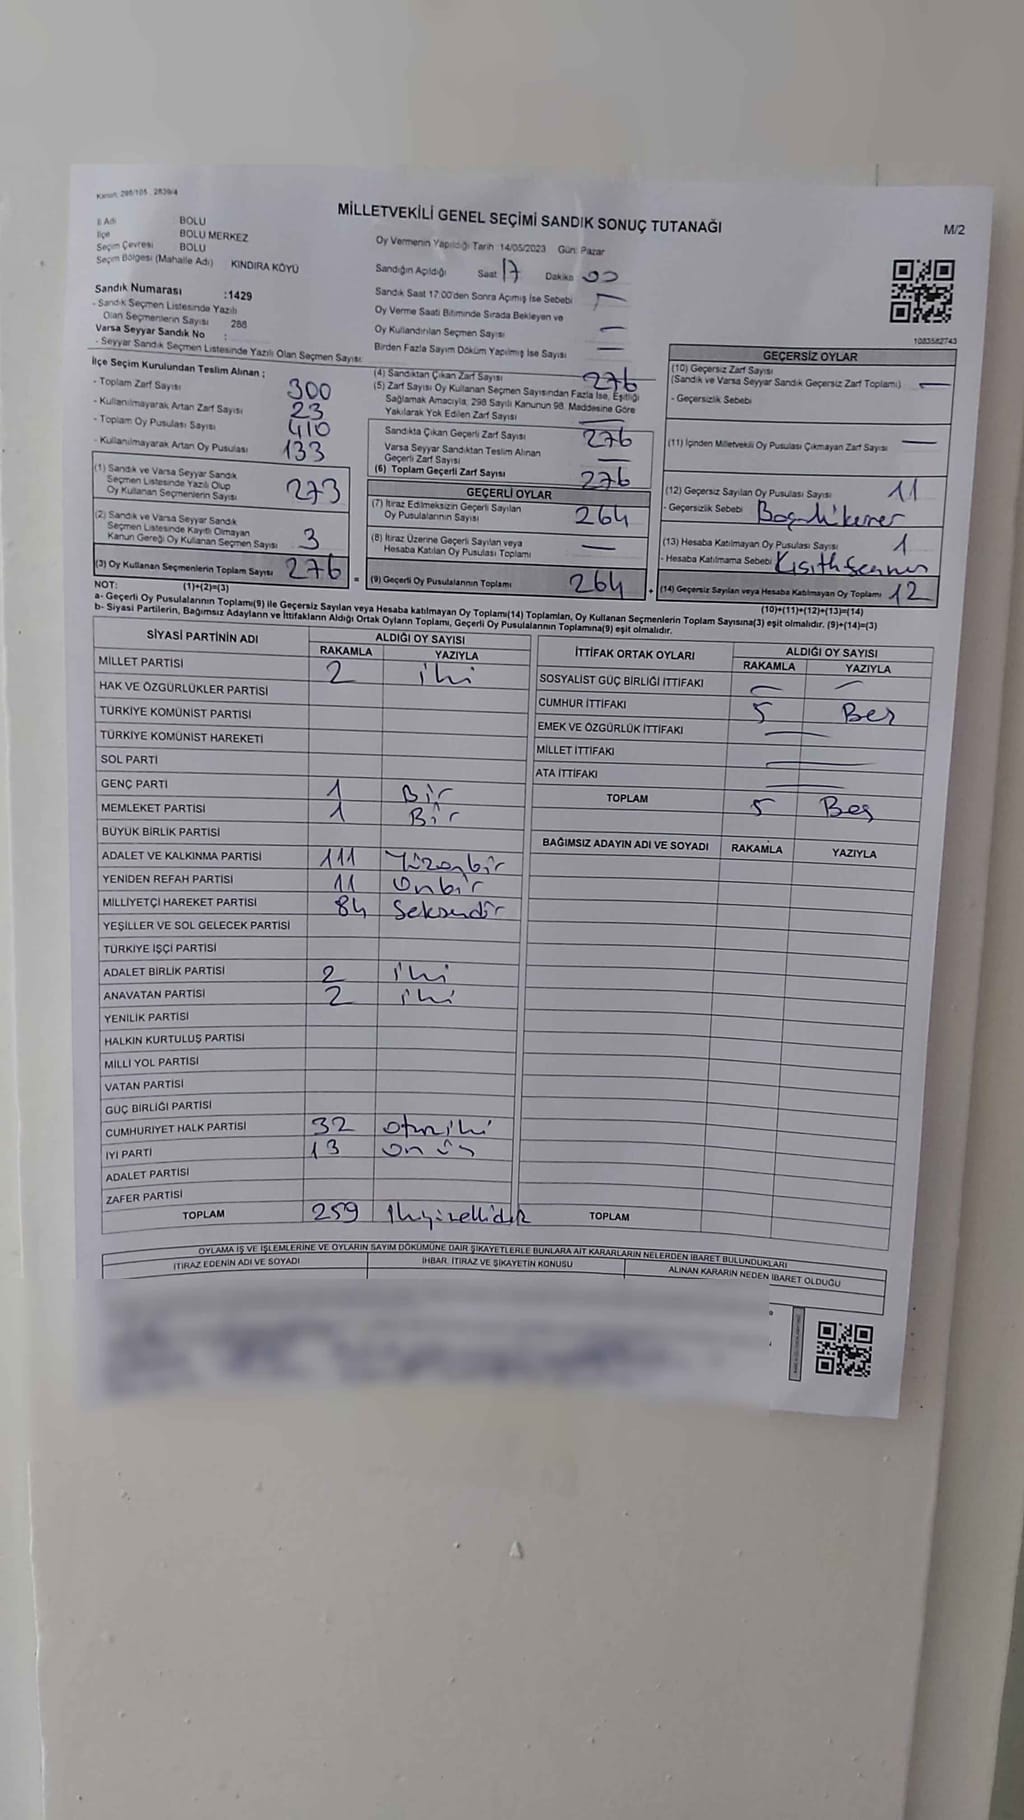 Kanun: 298/105 , 2839/4
MİLLETVEKİLİ GENEL SEÇİMİ SANDIK SONUÇ TUTANAĞI
M/2
İl Adı : BOLU
İlçe BOLU MERKEZ
Seçim Çevresi BOLU
Seçim Bölgesi (Mahalle Adı) KINDIRA KÖYÜ
Sandık Numarası :1429
- Sandık Seçmen Listesinde Yazılı
Olan Seçmenlerin Sayısı 288
Varsa Seyyar Sandık No :
- Seyyar Sandık Seçmen Listesinde Yazılı Olan Seçmen Sayısı:
Oy Vermenin Yapıldığı Tarih :14/05/2023 Gün: Pazar
Sandığın Açıldığı Saat 17 Dakika 00
Sandık Saat 17:00'den Sonra Açımış İse Sebebi
Oy Verme Saati Bitiminde Sırada Bekleyen ve
Oy Kullandırılan Seçmen Sayısı
Birden Fazla Sayım Döküm Yapılmış İse Sayısı
1083582743
İlçe Seçim Kurulundan Teslim Alınan ;
- Toplam Zarf Sayısı 300
- Kullanılmayarak Artan Zarf Sayısı 23
- Toplam Oy Pusulası Sayısı 410
- Kullanılmayarak Artan Oy Pusulası 133
(1) Sandık ve Varsa Seyyar Sandık
Seçmen Listesinde Yazılı Olup
Oy Kullanan Seçmenlerin Sayısı 273
(2) Sandık ve Varsa Seyyar Sandık
Seçmen Listesinde Kayıtlı Olmayan
Kanun Gereği Oy Kullanan Seçmen Sayısı 3
(3) Oy Kullanan Seçmenlerin Toplam Sayısı 276
(1)+(2)=(3)
(4) Sandıktan Çıkan Zarf Sayısı 276
(5) Zarf Sayısı Oy Kullanan Seçmen Sayısından Fazla İse, Eşitliği
Sağlamak Amacıyla, 298 Sayılı Kanunun 98. Maddesine Göre
Yakılarak Yok Edilen Zarf Sayısı
Sandıkta Çıkan Geçerli Zarf Sayısı 276
Varsa Seyyar Sandıktan Teslim Alınan
Geçerli Zarf Sayısı
(6) Toplam Geçerli Zarf Sayısı 276
GEÇERLİ OYLAR
(7) İtiraz Edilmeksizin Geçerli Sayılan
Oy Pusulalarının Sayısı 264
(8) İtiraz Üzerine Geçerli Sayılan veya
Hesaba Katılan Oy Pusulası Toplamı
= (9) Geçerli Oy Pusulalarının Toplamı 264 +
GEÇERSİZ OYLAR
(10) Geçersiz Zarf Sayısı
(Sandık ve Varsa Seyyar Sandık Geçersiz Zarf Toplamı)
- Geçersizlik Sebebi
(11) İçinden Milletvekili Oy Pusulası Çıkmayan Zarf Sayısı
(12) Geçersiz Sayılan Oy Pusulası Sayısı 11
- Geçersizlik Sebebi
(13) Hesaba Katılmayan Oy Pusulası Sayısı 1
- Hesaba Katılmama Sebebi
(14) Geçersiz Sayılan veya Hesaba Katılmayan Oy Toplamı 12
(10)+(11)+(12)+(13)=(14)
NOT:
a- Geçerli Oy Pusulalarının Toplamı(9) ile Geçersiz Sayılan veya Hesaba katılmayan Oy Toplamı(14) Toplamları, Oy Kullanan Seçmenlerin Toplam Sayısına(3) eşit olmalıdır. (9)+(14)=(3)
b- Siyasi Partilerin, Bağımsız Adayların ve İttifakların Aldığı Ortak Oyların Toplamı, Geçerli Oy Pusulalarının Toplamına(9) eşit olmalıdır.
SİYASİ PARTİNİN ADI ALDIĞI OY SAYISI
RAKAMLA YAZIYLA
MİLLET PARTİSİ 2 iki
HAK VE ÖZGÜRLÜKLER PARTİSİ
TÜRKİYE KOMÜNİST PARTİSİ
TÜRKİYE KOMÜNİST HAREKETİ
SOL PARTİ
GENÇ PARTİ 1 Bir
MEMLEKET PARTİSİ 1 Bir
BÜYÜK BİRLİK PARTİSİ
ADALET VE KALKINMA PARTİSİ 111 Yüzonbir
YENİDEN REFAH PARTİSİ 11 Onbir
MİLLİYETÇİ HAREKET PARTİSİ 84 Seksendör
YEŞİLLER VE SOL GELECEK PARTİSİ
TÜRKİYE İŞÇİ PARTİSİ
ADALET BİRLİK PARTİSİ 2 iki
ANAVATAN PARTİSİ 2 iki
YENİLİK PARTİSİ
HALKIN KURTULUŞ PARTİSİ
MİLLİ YOL PARTİSİ
VATAN PARTİSİ
GÜÇ BİRLİĞİ PARTİSİ
CUMHURİYET HALK PARTİSİ 32 otuziki
İYİ PARTİ 13 on üç
ADALET PARTİSİ
ZAFER PARTİSİ
TOPLAM 259
İTTİFAK ORTAK OYLARI ALDIĞI OY SAYISI
RAKAMLA YAZIYLA
SOSYALİST GÜÇ BİRLİĞİ İTTİFAKI
CUMHUR İTTİFAKI 5 Beş
EMEK VE ÖZGÜRLÜK İTTİFAKI
MİLLET İTTİFAKI
ATA İTTİFAKI
TOPLAM 5 Beş
BAĞIMSIZ ADAYIN ADI VE SOYADI RAKAMLA YAZIYLA
TOPLAM
OYLAMA İŞ VE İŞLEMLERİNE VE OYLARIN SAYIM DÖKÜMÜNE DAİR ŞİKAYETLERLE BUNLARA AİT KARARLARIN NELERDEN İBARET BULUNDUKLARI
İTİRAZ EDENİN ADI VE SOYADI İHBAR, İTİRAZ VE ŞİKAYETİN KONUSU ALINAN KARARIN NEDEN İBARET OLDUĞU